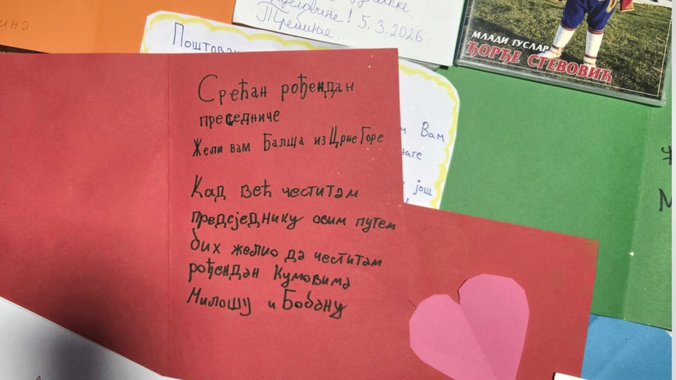 Требиње! 5.3.2026.
МЛАДИ ГУСЛАР
ЂОРЂЕ СТЕВОВИЋ
Поштова
Срећан рођендан
преседниче
Жели вам Балша из Црне Горе
Кад већ честитам
предсједнику овим путем
бих желио да честитам
рођендан Кумовима
Милошу и Бобану
Вам
још